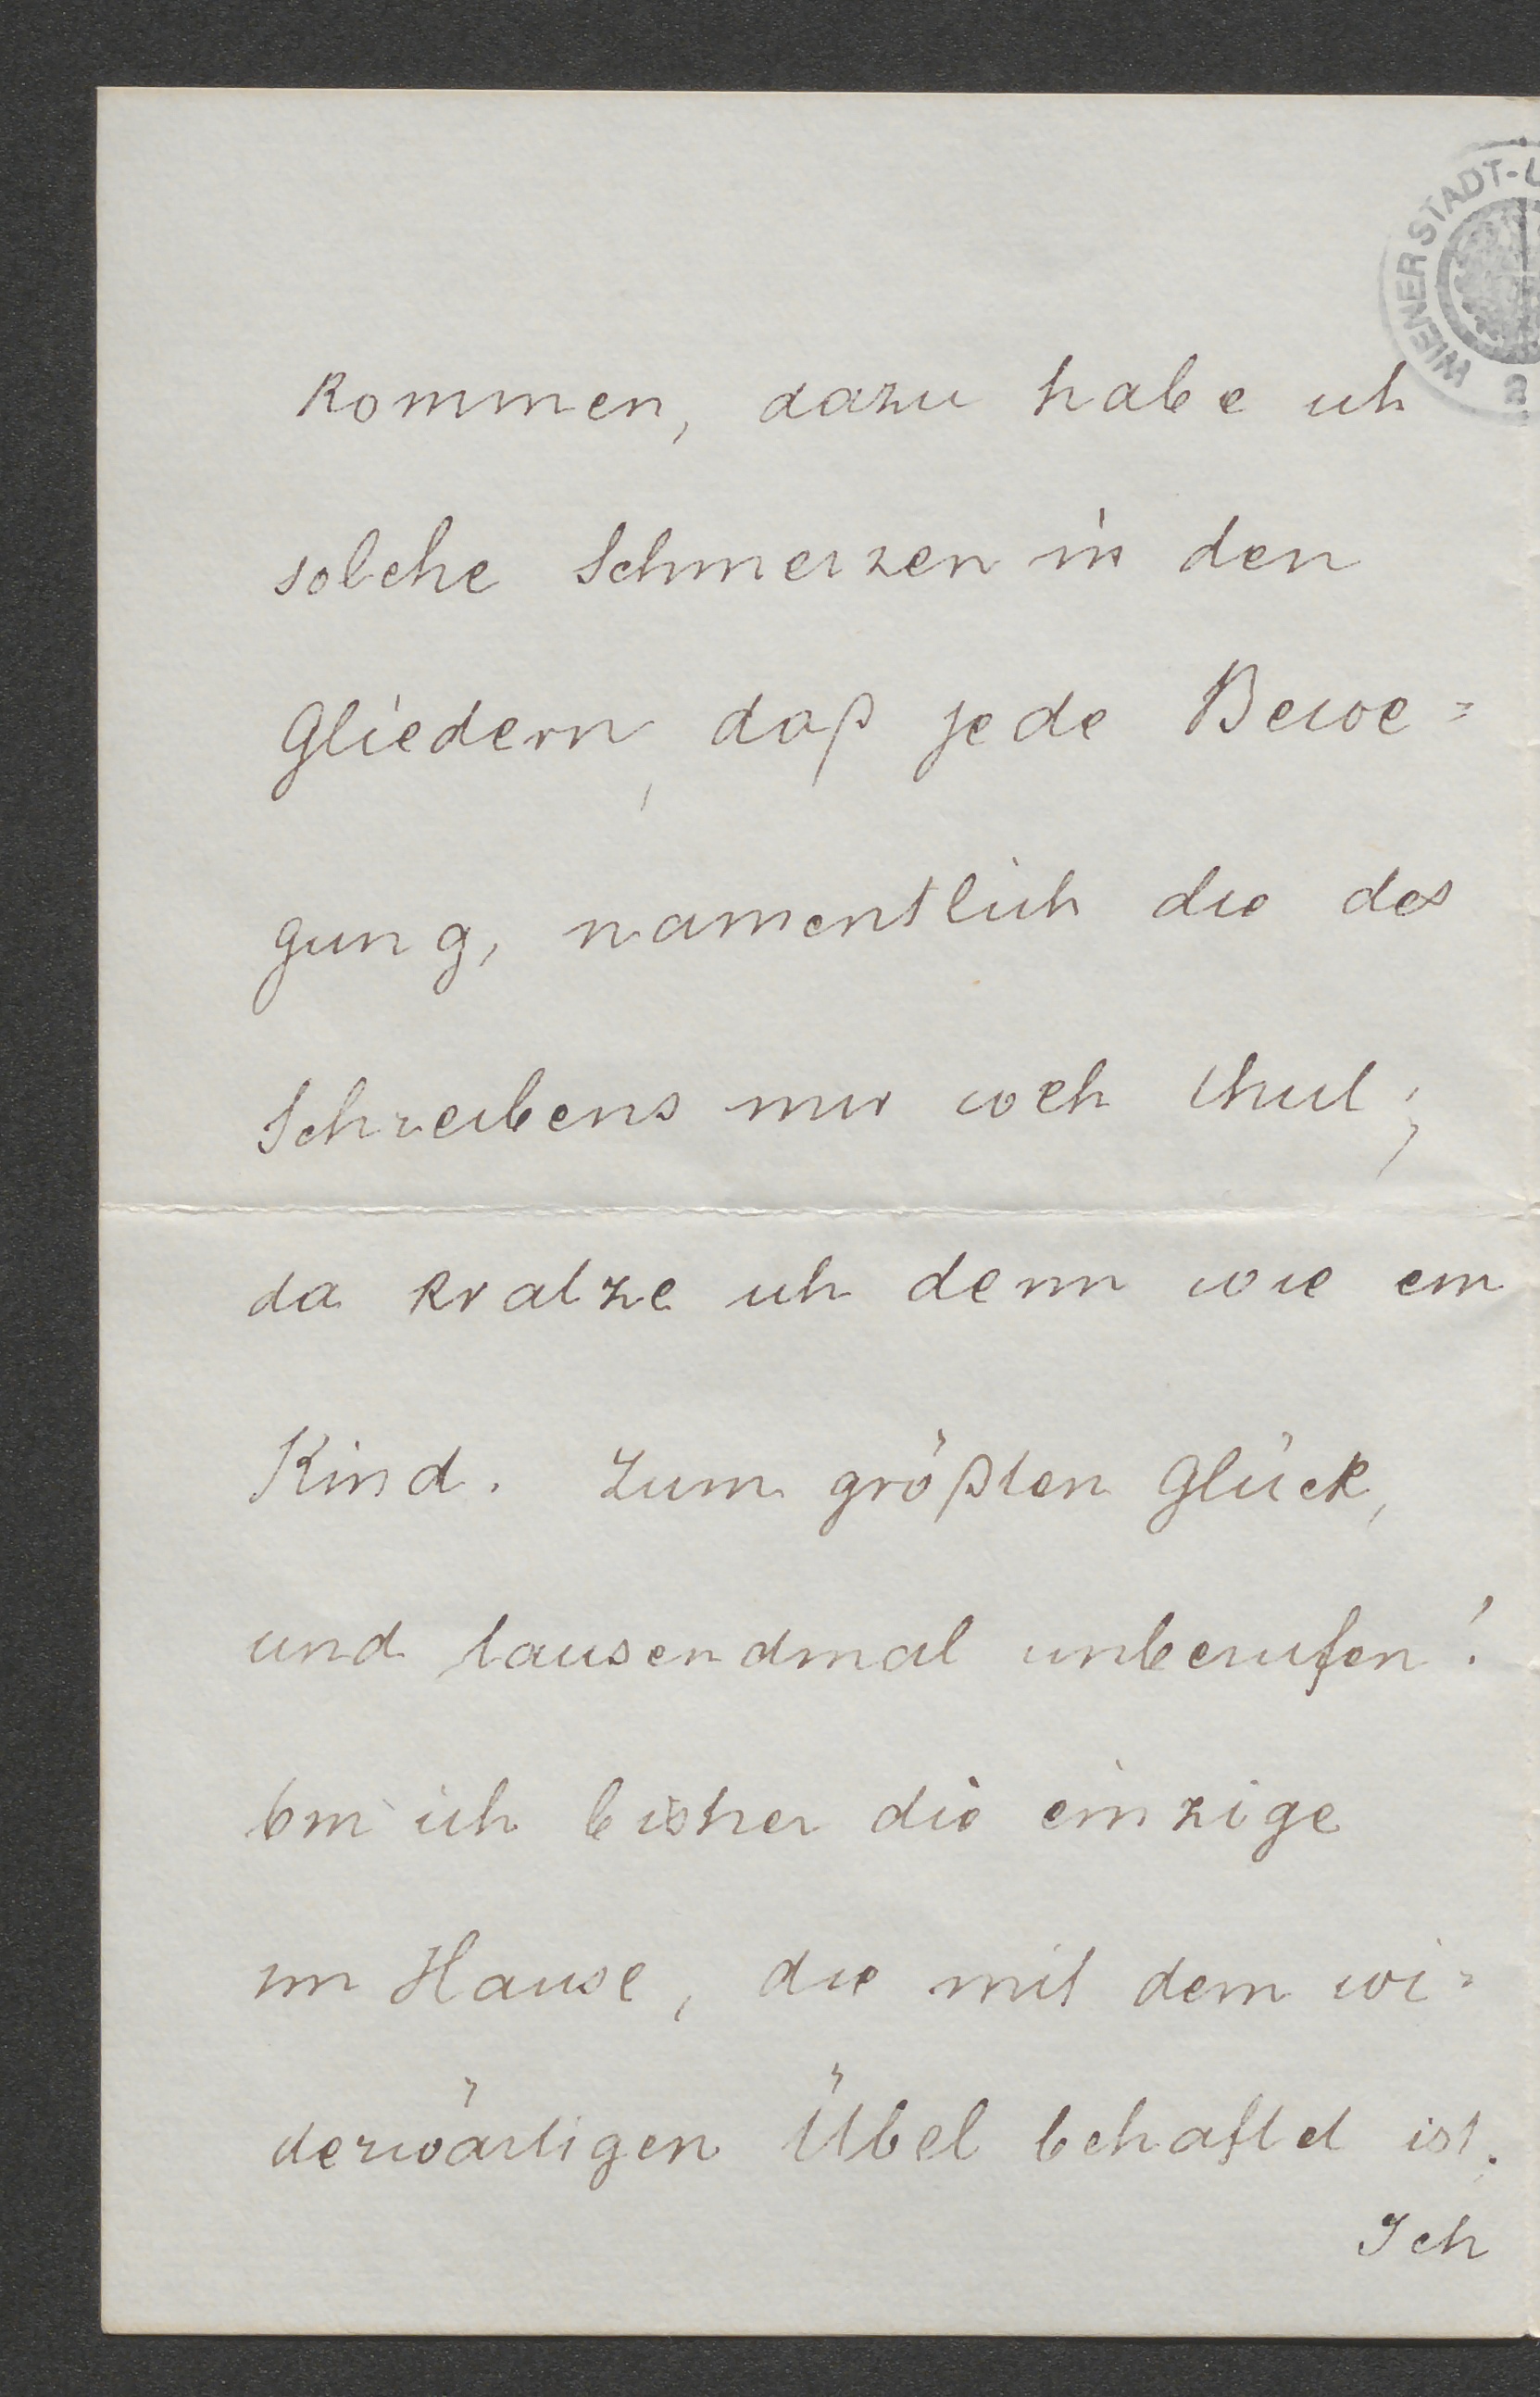 WIENER STADT-
2
kommen, dazu habe ich
solche Schmerzen in den
Gliedern, daß jede Bewe=
gung, namentlich die des
Schreibens mir weh thut;
da kratze ich denn wie ein
Kind. Zum größten Glück,
und tausendmal unberufen!
bin ich bisher die einzige
im Hause, die mit dem wi=
derwärtigen Übel behaftet ist.
Ich